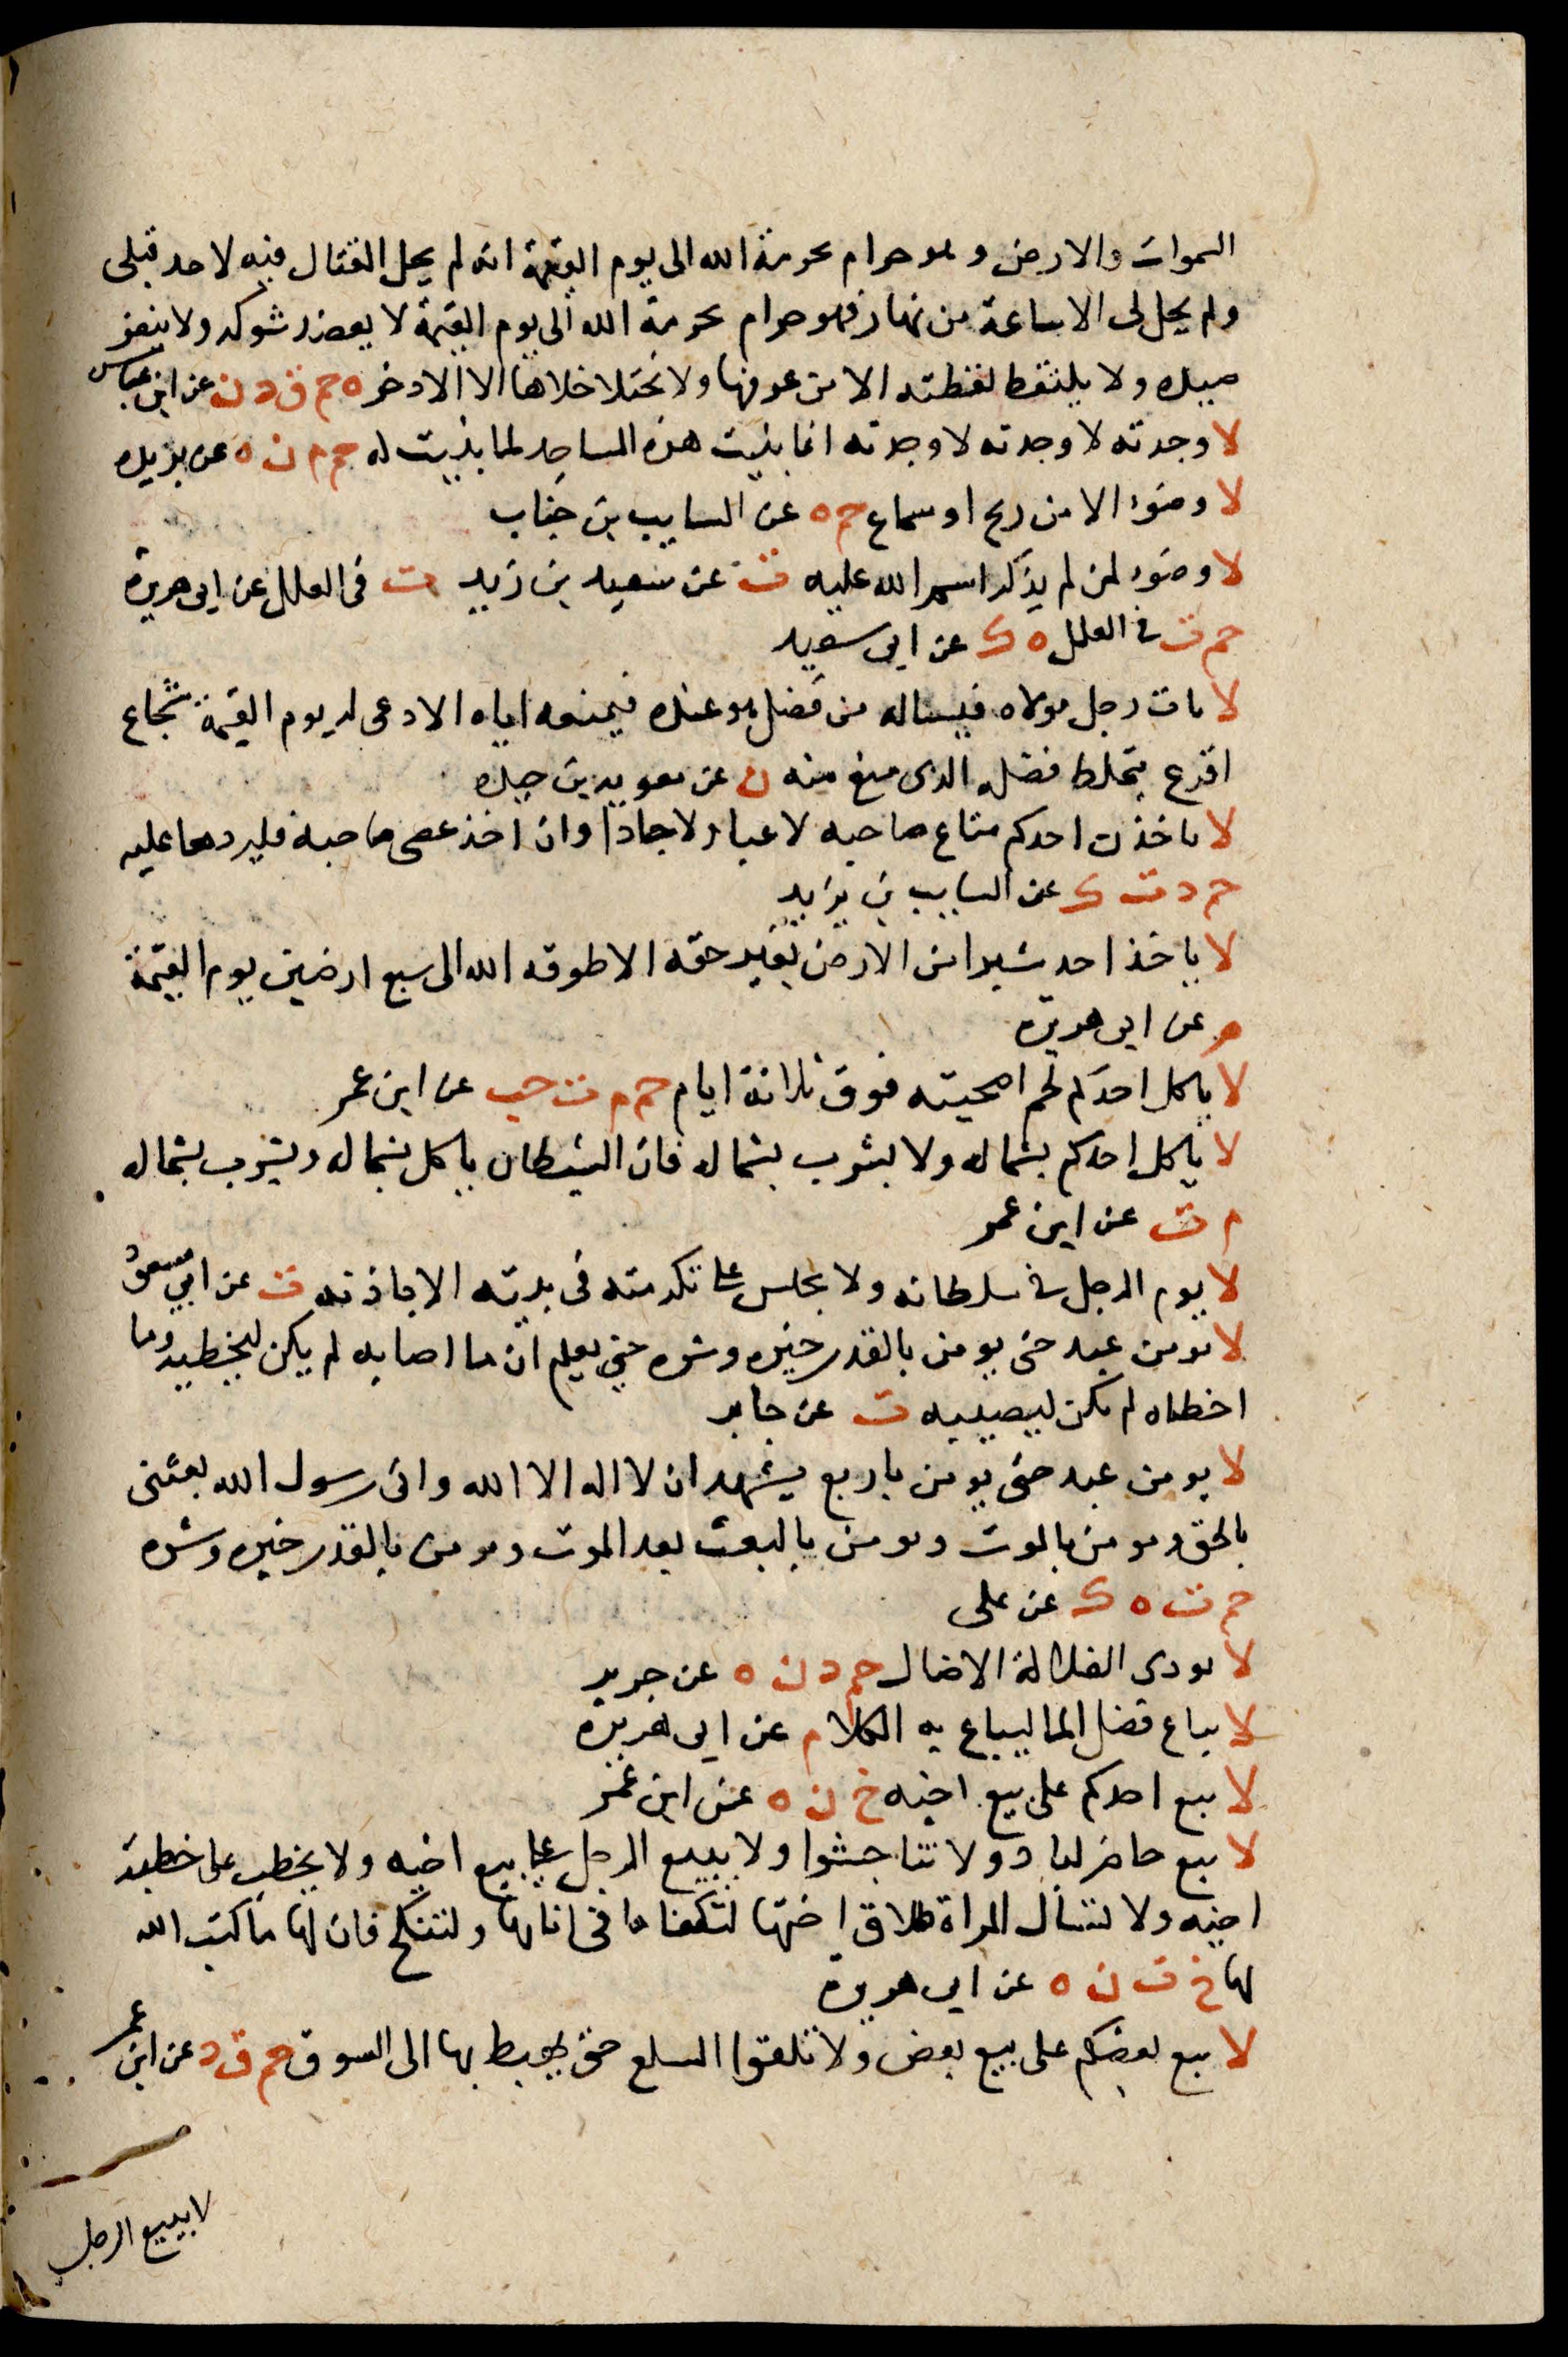 السموات والارض وهو حرام بحرمة الله الى يوم القيمة انه لم يحل القتال فيه لاحد قبلى
ولم يحل لى الا ساعة من نهار فهو حرام بحرمة الله الى يوم القيمة لا يعضد شوكه ولا ينفر
صيده ولا يلتقط لقطته الا من عرفها ولا يختلا خلاها الا الادخر ه حم ق د ن عن ابن عباس
لا وجدته لا وجدته لا وجدته انما بنيت هذه المساجد لما بنيت له حم م ن ه عن بريده
لا وضوء الا من ريح او سماع حم ه عن السايب بن خباب
لا وضوء لمن لم يذكر اسم الله عليه ت عن سعيد بن زيد ت فى العلل عن ابى هريرة
حم ت فى العلل ه ك عن ابى سعيد
لا يات رجل مولاه فيساله من فضل هو عنده فيمنعه اياه الا دعى له يوم القيمة شجاع
اقرع يتملظ فضله الذى منع منه ن عن معويه بن حيده
لا ياخذن احدكم متاع صاحبه لاعبا ولا جادا وان اخذ عصى صاحبه فليردها عليه
حم د ت ك عن السايب بن يزيد
لا ياخذ احد شبرا من الارض بغير حقه الا طوقه الله الى سبع ارضين يوم القيمة
م عن ابى هريرة
لا ياكل احدكم لحم اضحيته فوق ثلاثة ايام حم م ت حب عن ابن عمر
لا ياكل احدكم بشماله ولا يشرب بشماله فان الشيطان ياكل بشماله ويشرب بشماله
م ت عن ابن عمر
لا يوم الرجل فى سلطانه ولا يجلس على تكرمته فى بيته الا باذنه ت عن ابى مسعود
لا يومن عبد حتى يومن بالقدر خيره وشره حتى يعلم ان ما اصابه لم يكن ليخطيه وما
اخطاه لم يكن ليصيبه ت عن جابر
لا يومن عبد حتى يومن باربع يشهد ان لا اله الا الله وانى رسول الله بعثنى
بالحق ويومن بالموت ويومن بالبعث بعد الموت ويومن بالقدر خيره وشره
حم ت ه ك عن على
لا يودى الضالة الا ضال حم د ن ه عن جرير
لا يباع فضل الما ليباع به الكلا م عن ابى هريرة
لا يبع احدكم على بيع اخيه خ ن ه عن ابن عمر
لا يبع حاضر لباد ولا تناجشوا ولا يبيع الرجل على بيع اخيه ولا يخطب على خطبة
اخيه ولا تسأل المراة طلاق اختها لتكفا ما فى انايها ولتنكح فان لها ما كتب الله
لها خ ت ن ه عن ابى هريرة
لا يبع بعضكم على بيع بعض ولا تلقوا السلع حتى يهبط بها الى السوق حم ق د عن ابن عمر
لا يبيع الرجل